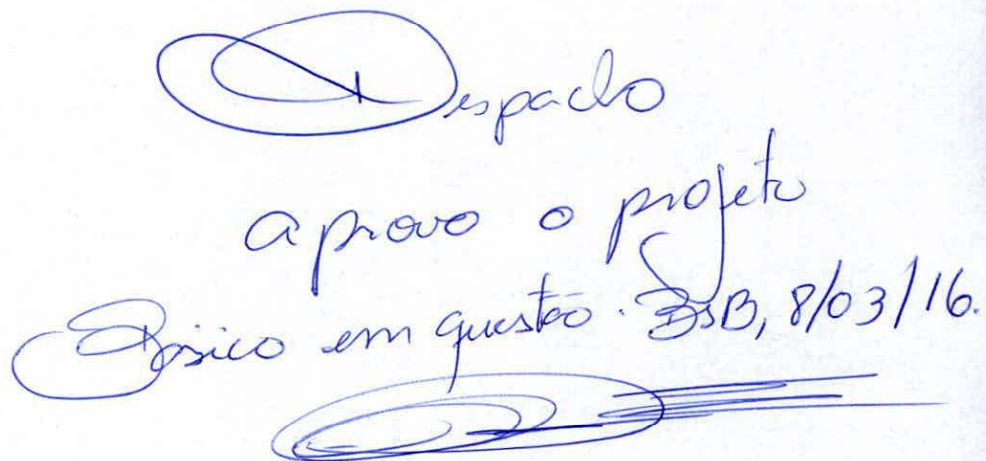 Despacho
aprovo o projeto
Básico em questão. BSB, 8/03/16.